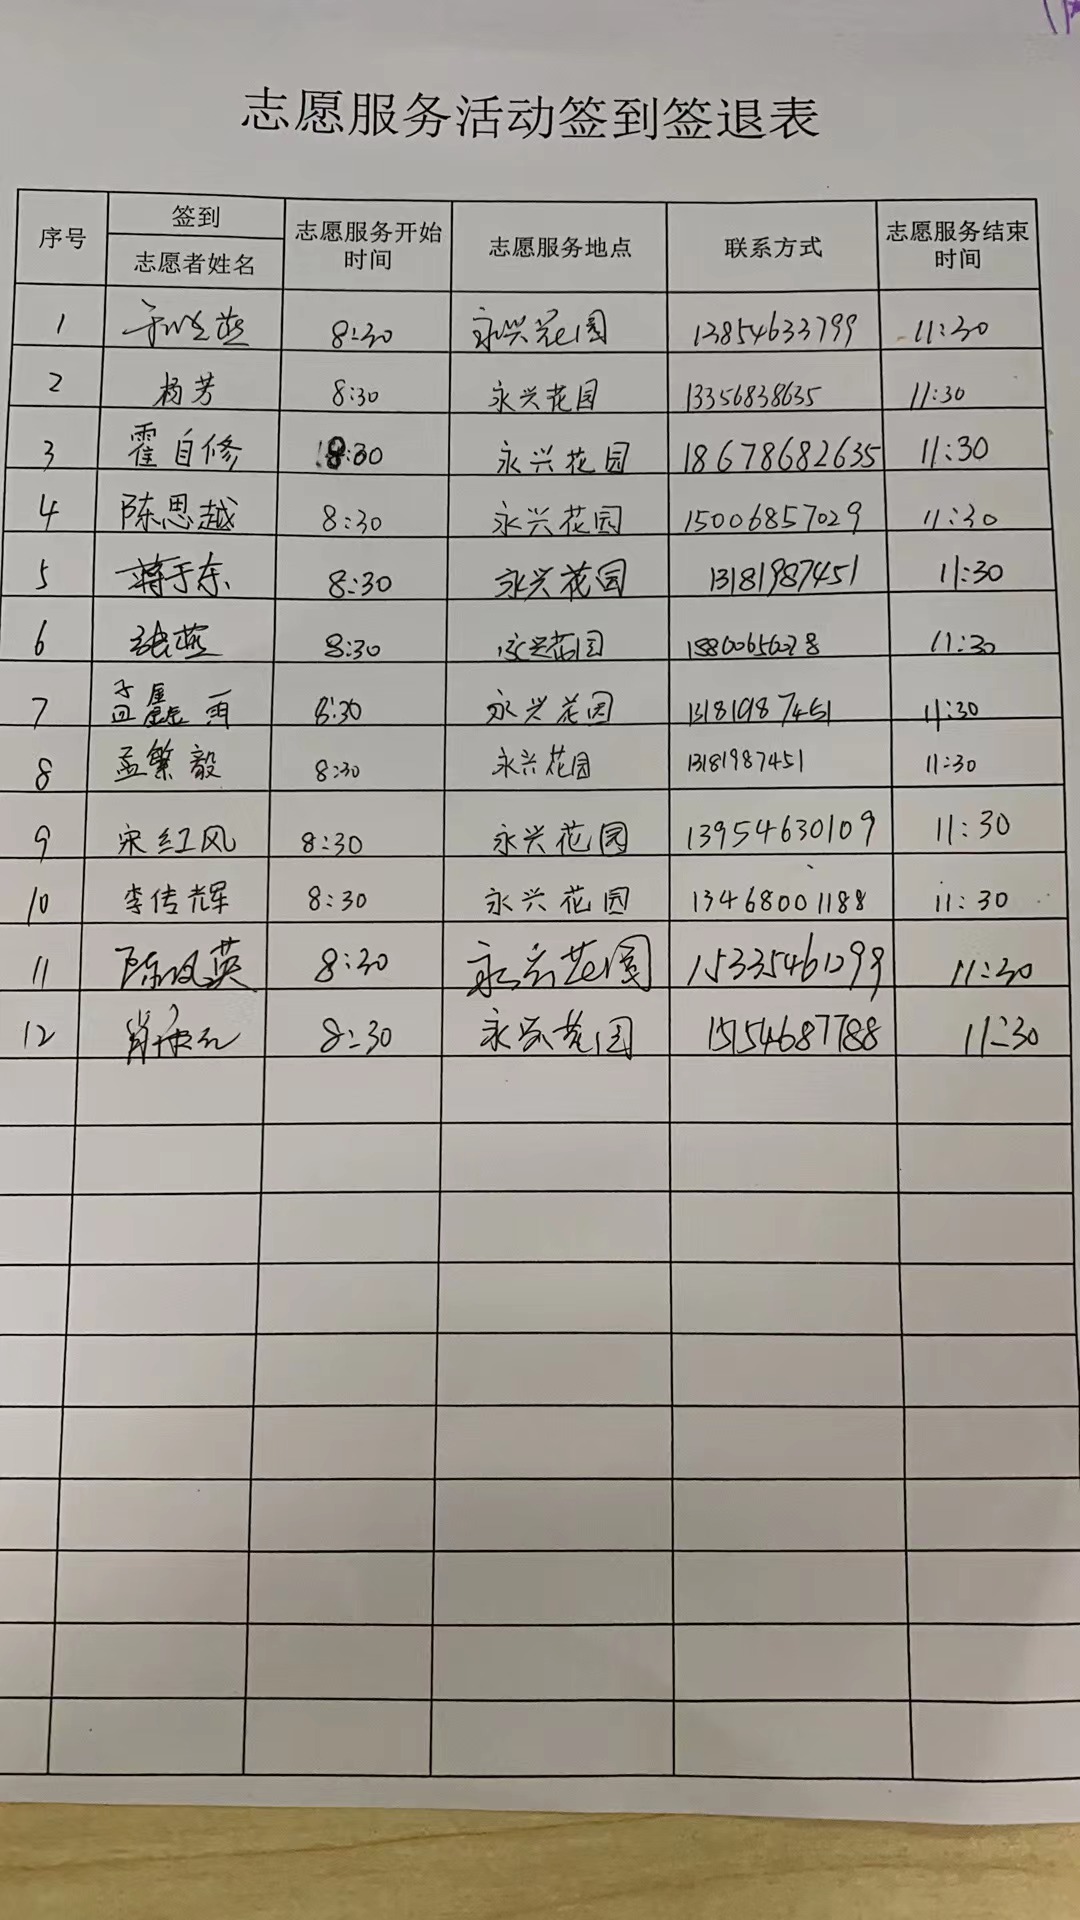 志愿服务活动签到签退表
序号 签到 志愿者姓名 志愿服务开始时间 志愿服务地点 联系方式 志愿服务结束时间
1 8:30 永兴花园 13854633799 11:30
2 杨芳 8:30 永兴花园 13356838635 11:30
3 霍自修 8:30 永兴花园 18678682635 11:30
4 陈思越 8:30 永兴花园 15006857029 11:30
5 蒋于东 8:30 永兴花园 13181987451 11:30
6 张燕 8:30 永兴花园 11:30
7 孟鑫雨 8:30 永兴花园 13181987451 11:30
8 孟繁毅 8:30 永兴花园 13181987451 11:30
9 宋红风 8:30 永兴花园 13954630109 11:30
10 李传辉 8:30 永兴花园 13468001188 11:30
11 8:30 永兴花园 15335461299 11:30
12 8:30 永兴花园 15154687788 11:30